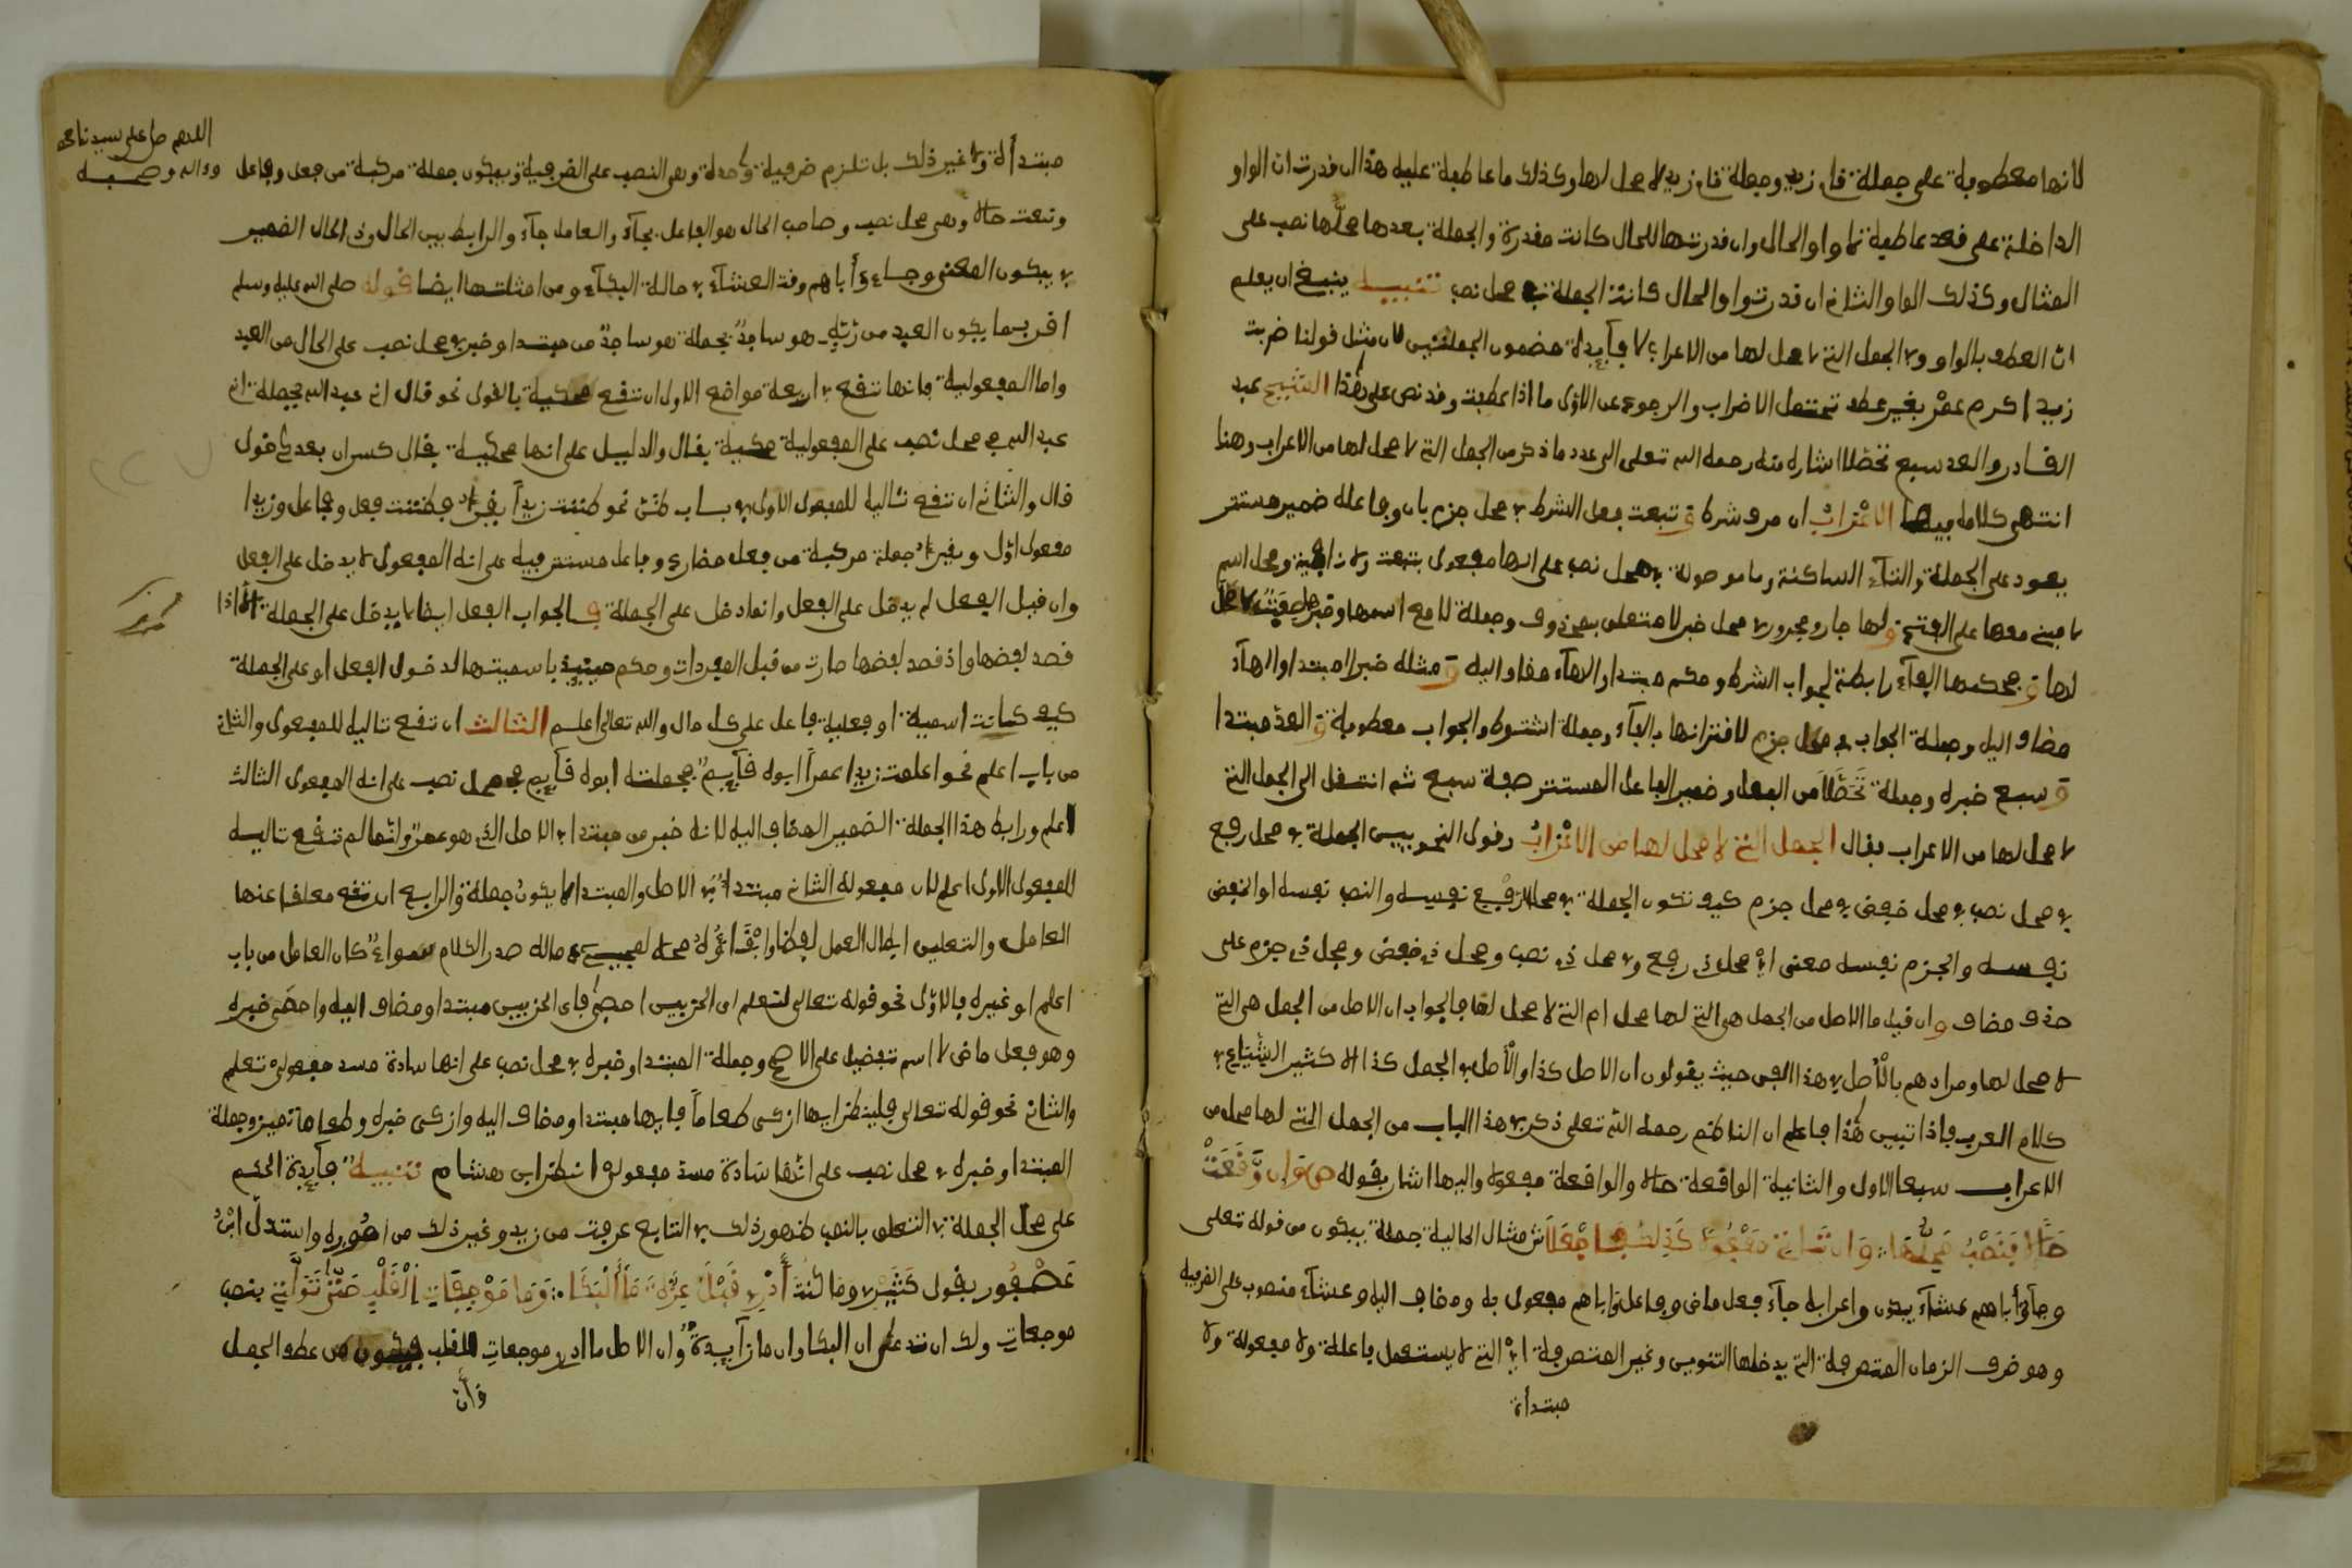 لانها معطوفة على جملة قام زيد وجملة قام زيد لا محل لها وكذلك ما عاطفة عليه هذا ان قدرت ان الواو
الداخلة على قعد عاطفة لا واو الحال وان قدرتها للحال كانت مقدرة والجملة بعدها محلها نصب على
المثال وكذلك الواو الثاني ان قدرتوا والحال كانت الجملة في محل نصب تنبيه ينبغي ان يعلم
ان العطف بالواو في الجمل التي لا محل لها من الاعراب لا فايدة مضمون الجملتين لان مثل قولنا ضربت
زيدا اكرم عمر بغير عطف تحتمل الاضراب والرجوع عن الاول ما اذا عطفت وقد نص على هذا الشيخ عبد
القادر والعد سبع تخطلا اشاره منه رحمه الله تعلى الى عدد ما ذكر من الجمل التي لا محل لها من الاعراب وهنا
انتهى كلامه فيها الاعراب ان حرف شرط و تبعت فعل الشرط في محل جزم بان وفاعله ضمير مستتر
يعود على الجملة والتاء الساكنة وما موصولة في محل نصب على انها مفعول بتبعت ولا نافية ومحل اسم
لا مبني معها على الفتح ولها جار ومجرور في محل خبر لا متعلق بمحذوف وجملة لا مع اسمها وخبرها صفة لا محل
لها و فحكمها الفاء رابطة لجواب الشرط وحكم مبتدا والهاء مضاف اليه و مثله خبر المبتدا والهاء
مضاف اليه وجملة الجواب في محل جزم لاقترانها بالفاء وجملة الشرط والجواب معطوفة و العد مبتدا
و سبع خبره وجملة تخطلا من الفعل وضمير الفاعل المستتر صفة سبع ثم انتقل الى الجمل التي
لا محل لها من الاعراب فقال الجمل التي لا محل لها من الاعراب وقول النحويين الجملة في محل رفع
في محل نصب في محل خفض في محل جزم كيف تكون الجملة في محل الرفع نفسه والنصب نفسه او الخفض
نفسه والجزم نفسه معنى اي محل ذي رفع وفي محل ذي نصب ومحل ذي خفض ومحل ذي جزم على
حذف مضاف وان قيل ما الاصل من الجمل هي التي لها محل ام التي لا محل لها فالجواب ان الاصل من الجمل هي التي
لا محل لها ومرادهم بالاصل في هذا الفن حيث يقولون ان الاصل كذا والاصل في الجمل كذا الا كثير الشياع في
كلام العرب فاذا تبين هذا فاعلم ان الناظم رحمه الله تعلى ذكر في هذا الباب من الجمل التي لها محل من
الاعراب سبعا الاول والثانية الواقعة حالا والواقعة مفعولا واليها اشار بقوله وان وقعت
حالا فنصب محلها وان ثانية مفعولا كذلك فاجعلا ش مثال الحالية جملة يبكون من قوله تعلى
وجآءو أباهم عشآء يبكون واعرابه جآء فعل ماض وفاعل وأباهم مفعول به ومضاف اليه وعشآء منصوب على الظرفية
وهو ظرف الزمان المتصرفة التي يدخلها التنوين وغير المتصرفة اي التي لا يستعمل فاعلة ولا مفعولة ولا
مبتدأة
اللهم صل على سيدنا محمد
وءاله وصحبه
مبتدأة ولا غير ذلك بل تلزم ظرفية واحدة وهي النصب على الظرفية ويبكون جملة مركبة من فعل وفاعل
وتبعت حالا وهي محل نصب وصاحب الحال هو الفاعل بجآء والعامل جآء والرابط بين الحال وذي الحال الضمير
في يبكون المعنى وجاءو أباهم وقت العشآء في حالة البكآء ومن امثلتها ايضا قوله صلى الله عليه وسلم
اقرب ما يكون العبد من ربه وهو ساجد فجملة هو ساجد من مبتدا وخبر في محل نصب على الحال من العبد
واما المفعولية فانها تقع في اربعة مواضع الاول ان تقع محكية بالقول نحو قال اني عبد الله فجملة اني
عبد الله في محل نصب على المفعولية محكية بقال والدليل على انها محكية بقال كسر ان بعد كل قول
قال والثاني ان تقع تاليه للمفعول الاول في باب ظن نحو ظننت زيدا يقرا فظننت فعل وفاعل وزيدا
مفعول اول ويقرا جملة مركبة من فعل مضارع وفاعل مستتر فيه على انه المفعول لا يدخل على الفعل
وان قيل الفعل لم يدخل على الفعل وانما دخل على الجملة فالجواب الفعل ايضا لا يدخل على الجملة الا اذا
قصد لفظها واذ قصد لفظها صارت من قبل المفردات وحكم حينئذ باسميتها لدخول الفعل او على الجملة
كيف كانت اسمية او فعلية فاعل على كل حال والله تعالى اعلم الثالث ان تقع تاليه للمفعول والثاني
من باب اعلم نحو اعلمت زيدا عمرا ابوه قآيم فجملته ابوه قآيم في محل نصب على انه المفعول الثالث
لاعلم ورابط هذا الجملة الضمير المضاف اليه لانه خبر من مبتدا في الاصل الذي هو عمر وانما لم تقع تاليه
للمفعول الاول اعلم لان مفعوله الثاني مبتدا في الاصل والمبتدا لا يكون جملة والرابع ان تقع معلقا عنها
العامل والتعليق ابطال العمل لفظا وابقاؤه محلا لمجيء ما له صدر الكلام سواء كان العامل من باب
اعلم او غيره فالاول نحو قوله تعالى لنعلم اي الحزبين احصى فاي الحزبين مبتدا ومضاف اليه واحصى خبره
وهو فعل ماض لا اسم تفضيل على الاصح وجملة المبتدا وخبره في محل نصب على انها سادة مسد مفعولي نعلم
والثاني نحو قوله تعالى فلينظر ايها ازكى طعاما فايها مبتدا ومضاف اليه وازكى خبره وطعاما تمييز وجملة
المبتدا وخبره في محل نصب على انها سادة مسد مفعولي انظر ابن هشام تنبيه فآيدة الحكم
على محل الجملة في التعليق بالنصب ظهور ذلك في التابع عرفت من زيد وغير ذلك من اموره واستدل ابن
عصفور بقول كثير وما كنت أدري قبل عزة ما البكا ∴ وما موجعات القلب حتى تولت بنصب
موجعات ولك ان تدعي ان البكا وان ما زآيدة وان الاصل ما ادري موجعات القلب فيكون من عطف الجمل
وأن